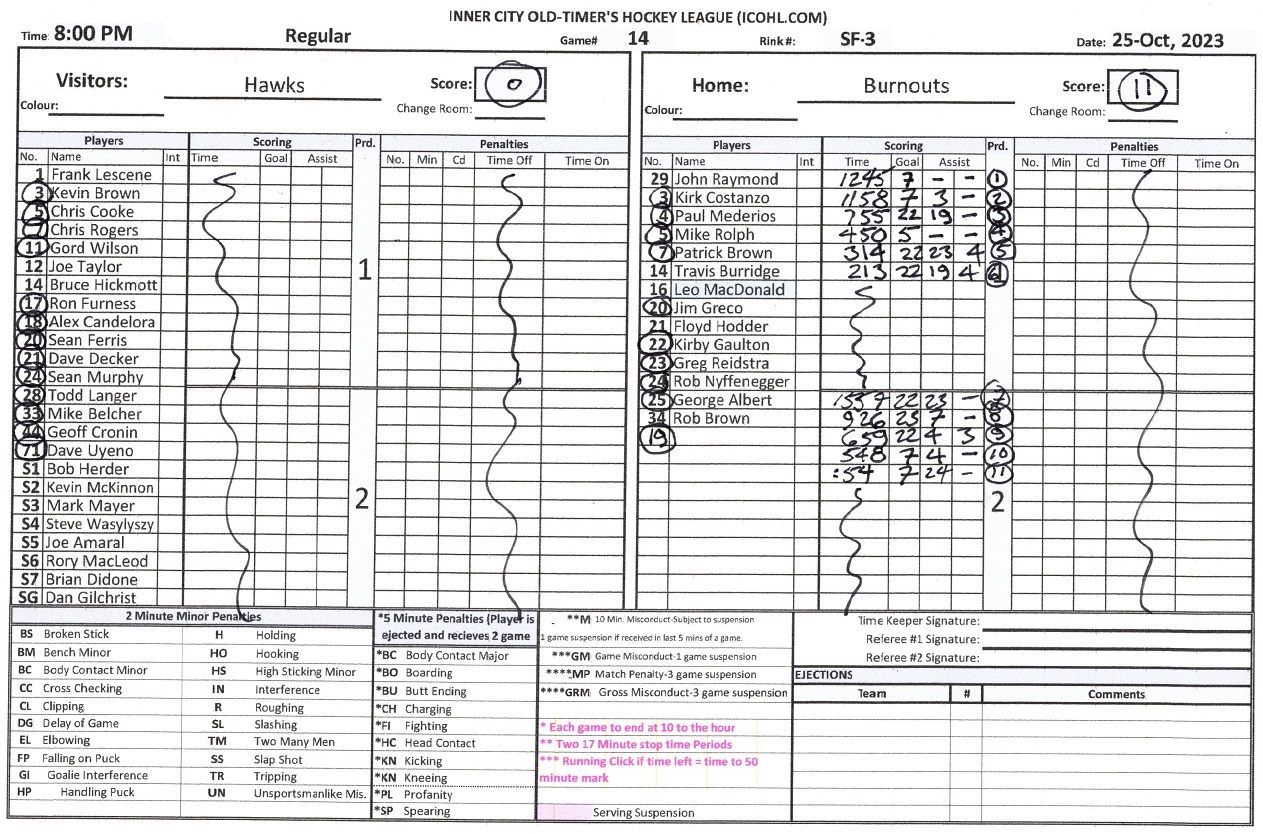 INNER CITY OLD-TIMER'S HOCKEY LEAGUE (ICOHL.COM)
Time: 8:00 PM Regular Game# 14 Rink#: SF-3 Date: 25-Oct, 2023
Visitors: Hawks Score: 0
Colour: Change Room:
Players Scoring Prd. Penalties
No. Name Int Time Goal Assist No. Min Cd Time Off Time On
1 Frank Lescene
3 Kevin Brown
5 Chris Cooke
7 Chris Rogers
11 Gord Wilson
12 Joe Taylor 1
14 Bruce Hickmott
17 Ron Furness
18 Alex Candelora
20 Sean Ferris
21 Dave Decker
24 Sean Murphy
28 Todd Langer
33 Mike Belcher
44 Geoff Cronin
71 Dave Uyeno
S1 Bob Herder
S2 Kevin McKinnon 2
S3 Mark Mayer
S4 Steve Wasylyszy
S5 Joe Amaral
S6 Rory MacLeod
S7 Brian Didone
SG Dan Gilchrist
Home: Burnouts Score: 11
Colour: Change Room:
Players Scoring Prd. Penalties
No. Name Int Time Goal Assist No. Min Cd Time Off Time On
29 John Raymond 1245 7 - - 1
3 Kirk Costanzo 1158 7 3 - 2
4 Paul Mederios 755 22 19 - 3
5 Mike Rolph 450 5 - - 4
7 Patrick Brown 314 22 23 4 5
14 Travis Burridge 213 22 19 4 6
16 Leo MacDonald
20 Jim Greco
21 Floyd Hodder
22 Kirby Gaulton
23 Greg Reidstra
24 Rob Nyffenegger
25 George Albert 1557 22 23 - 7
34 Rob Brown 926 23 7 - 8
19 659 22 4 3 9
548 7 4 - 10
:54 7 24 - 11
2
2 Minute Minor Penalties
BS Broken Stick H Holding
BM Bench Minor HO Hooking
BC Body Contact Minor HS High Sticking Minor
CC Cross Checking IN Interference
CL Clipping R Roughing
DG Delay of Game SL Slashing
EL Elbowing TM Two Many Men
FP Falling on Puck SS Slap Shot
GI Goalie Interference TR Tripping
HP Handling Puck UN Unsportsmanlike Mis.
*5 Minute Penalties (Player is
ejected and recieves 2 game
*BC Body Contact Major
*BO Boarding
*BU Butt Ending
*CH Charging
*FI Fighting
*HC Head Contact
*KN Kicking
*KN Kneeing
*PL Profanity
*SP Spearing
**M 10 Min. Misconduct-Subject to suspension
1 game suspension if received in last 5 mins of a game.
***GM Game Misconduct-1 game suspension
****MP Match Penalty-3 game suspension
****GRM Gross Misconduct-3 game suspension
* Each game to end at 10 to the hour
** Two 17 Minute stop time Periods
*** Running Click if time left = time to 50
minute mark
Serving Suspension
Time Keeper Signature:
Referee #1 Signature:
Referee #2 Signature:
EJECTIONS
Team # Comments